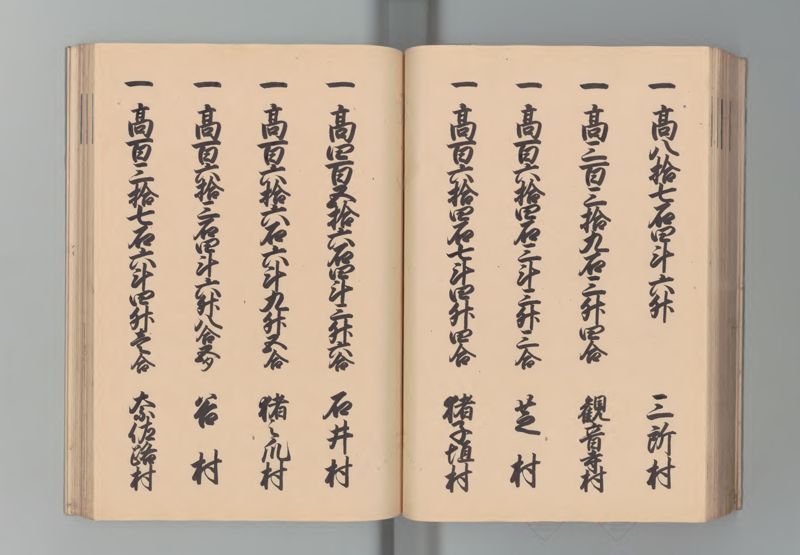 一 高八拾七石四斗六升 三所村
一 高三百三拾九石三升四合 観音寺村
一 高百六拾四石三斗三升三合 芝村
一 高百六拾四石七斗四升四合 猪子垣村
一 高四百五拾六石四斗三升六合 石井村
一 高百六拾六石六斗九升五合 猪之爪村
一 高百六拾三石四斗六升八合 谷村
一 高百三拾七石六斗四升 合 奈佐路村